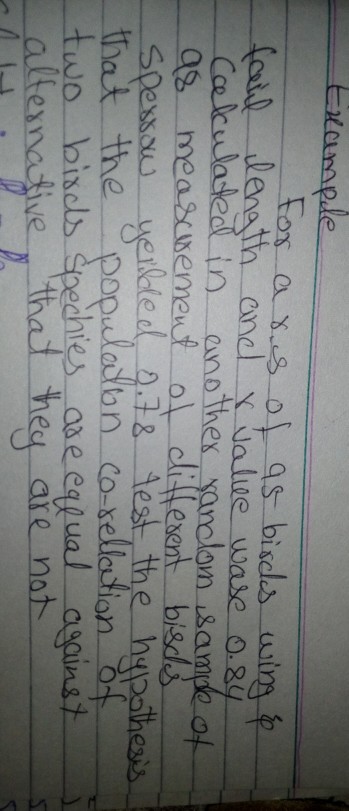 Example
For a r.s of 95 birds wing &
tail length and r value ware 0.84
calculated in another random sample of
98 measurement of different birds
sperrow yeilded 0.78 test the hypothesis
that the population co-rellation of
two birds spechies are equal against
alternative that they are not